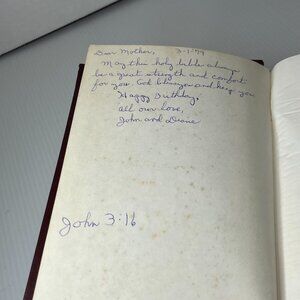 Dear Mother, 3-1-79
May this holy bible always
be a great strength and comfort
for you. God bless you and keep you
Happy Birthday,
all our love,
John and Duane
John 3:16